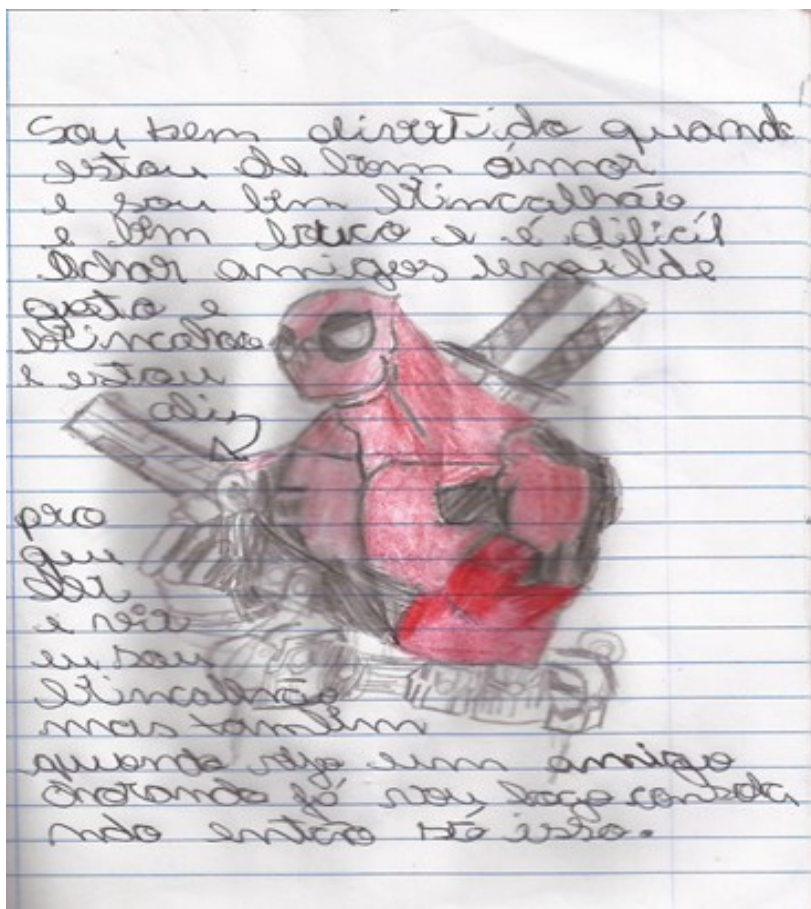 Sou bem divertido quando
estou de bom úmor
e sou bem brincalhão
e bem louco e é dificíl
achar amigos umilde
gosto e
brincalhao
e estou
diz
pro
que
der
e vir
eu sou
brincalhão
mas também
quando vejo um amigo
chorando já vou logo consola
ndo então só isso.